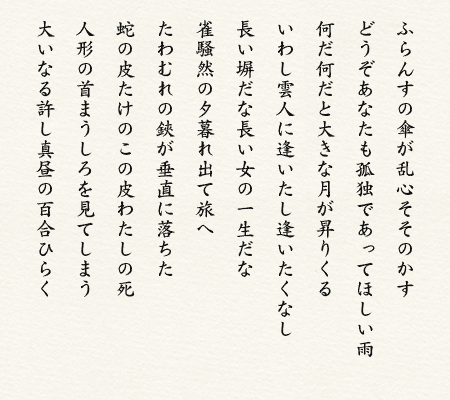 ふらんすの傘が乱心そそのかす
どうぞあなたも孤独であってほしい雨
何だ何だと大きな月が昇りくる
いわし雲人に逢いたし逢いたくなし
長い塀だな長い女の一生だな
雀騒然の夕暮れ出て旅へ
たわむれの鋏が垂直に落ちた
蛇の皮たけのこの皮わたしの死
人形の首まうしろを見てしまう
大いなる許し真昼の百合ひらく